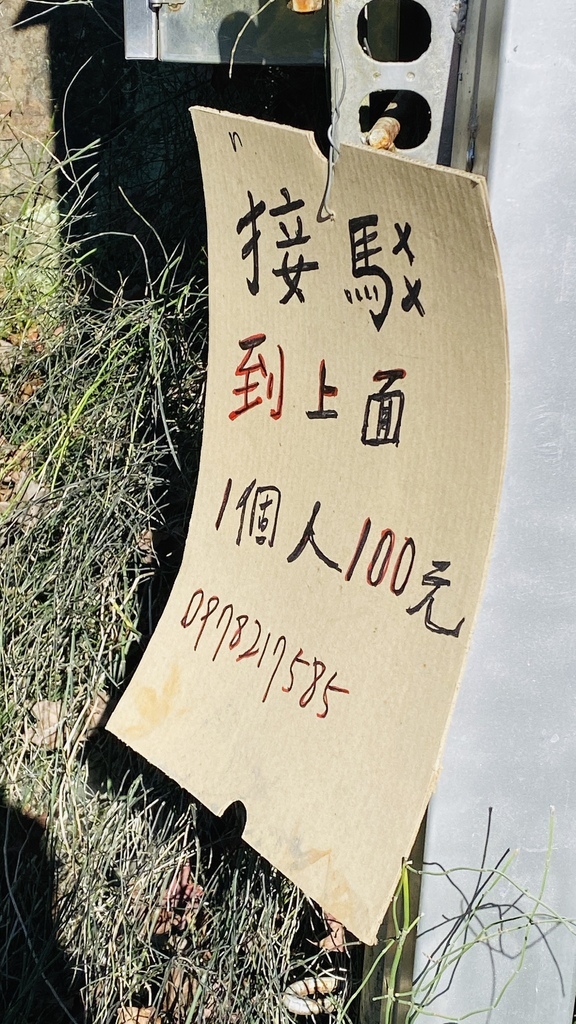 接駁
到上面
1個人100元
0978217585